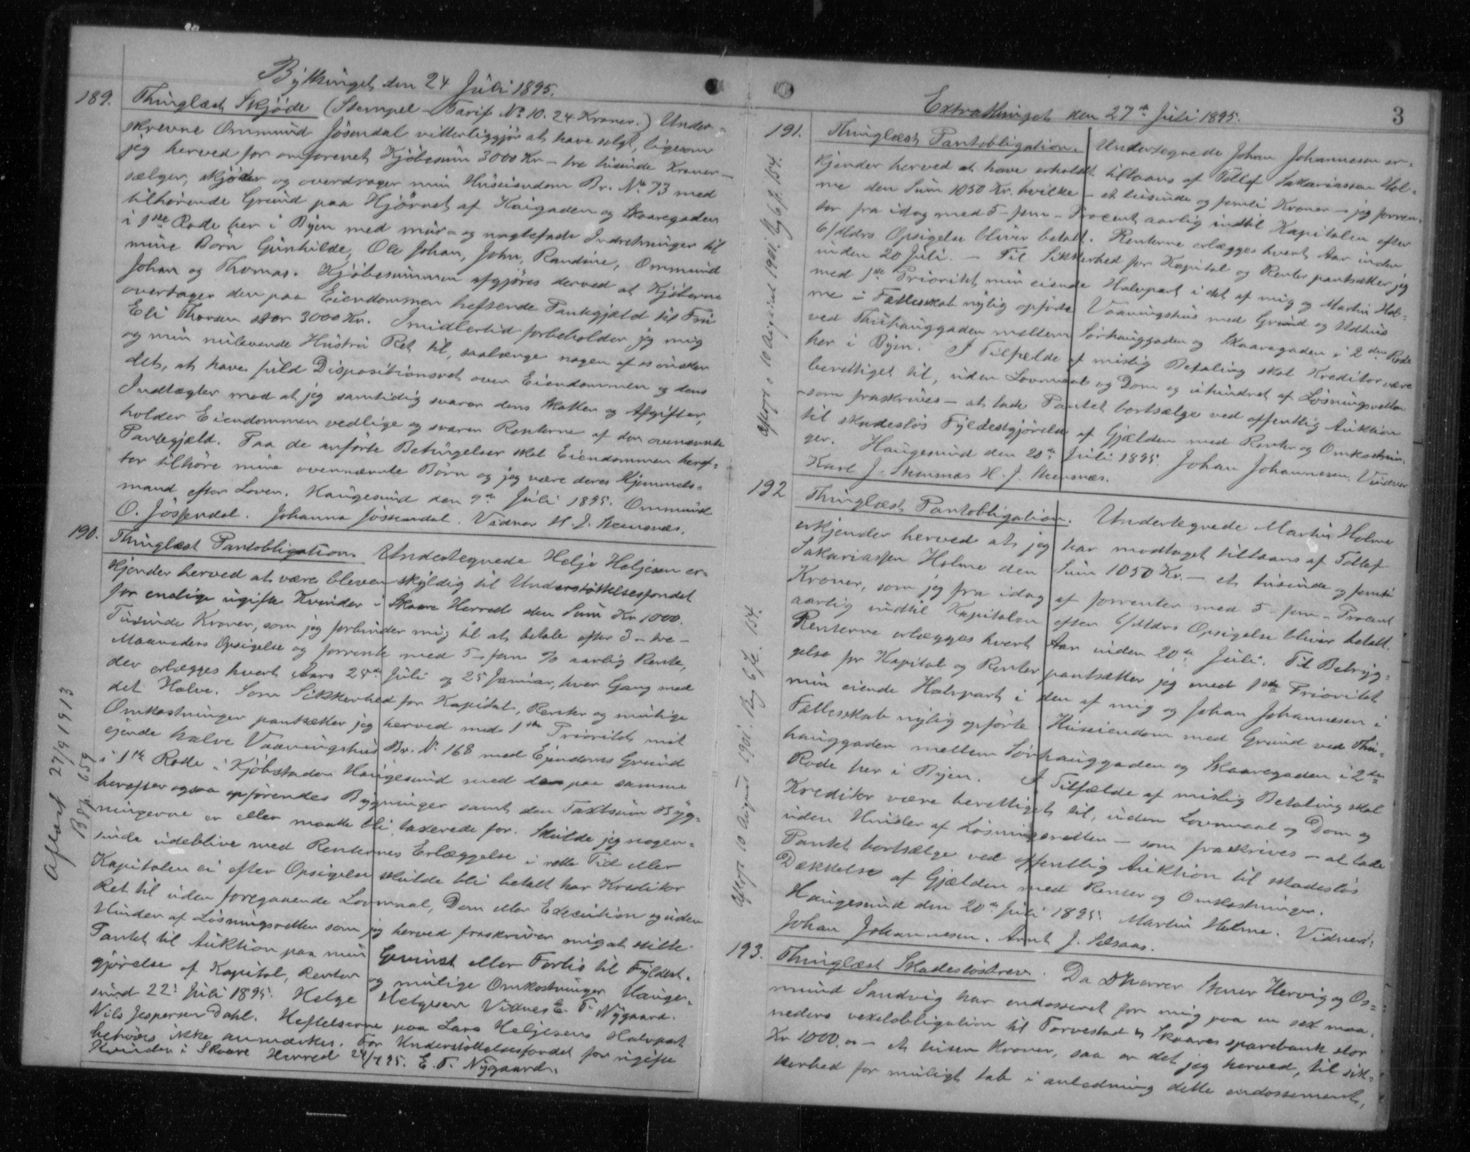 Bythinget den 24 Juli 1895.
189. Thinglæst Skjøde (Stempel-Tarif No 10. 24 Kroner.) Under-
skrevne Ommund Jösendal vitterliggjør at have solgt, ligesom
jeg herved for omforenet Kjøbesum 3000 Kr – tre tusinde Kroner –
sælger, skjøder og overdrager min Huseiendom Br. No 73 med
tilhørende Grund paa Hjørnet af Kaigaden og Skaaregaden
i 1ste Rode her i Byen med mur- og nagelfaste Indretninger til
mine Børn Gunhilde, Ole Johan, John, Randine, Ommund
Johan og Thomas. Kjøbesummen afgjøres derved at Kjøberne
overtager den paa Eiendommen heftende Pantegjæld til
Eli Thorsen stor 3000 Kr. Imidlertid forbeholder jeg mig
og min nulevende Hustru Ret til, saalænge nogen af os ønsker
det, at have fuld Dispositionsret over Eiendommen og dens
Indtægter mod at jeg samtidig svarer dens Skatter og Afgifter,
holder Eiendommen vedlige og svarer Renterne af den ovennævnte
Pantegjæld. Paa de anførte Betingelser skal Eiendommen heref-
ter tilhøre mine ovennævnte Børn og jeg være deres Hjemmels-
mand efter Loven. Haugesund den 9de Juli 1895. Ommund
O. Jøssendal. Johanna Jøssendal. Vidner H. J.
190. Thinglæst Pantobligation. Undertegnede Helje Heljesen er-
kjender herved at være bleven skyldig til Understøttelsesfondet
for enslige ugifte Kvinder i Skaare Herred den Sum Kr 1000.
Tusinde Kroner, som jeg forbinder mig til at betale efter 3 – tre –
Maaneders Opsigelse og forrente med 5 – fem % aarlig Rente,
der erlægges hvert Aars 25de Juli og 25 Januar, hver Gang med
det Halve. Som Sikkerhed for Kapital, Renter og mulige
Omkostninger pantsætter jeg herved med 1ste Prioritet mit
eiende halve Vaaningshus Br. No 168 med Eiendoms Grund
i 1ste Rode i Kjøbstaden Haugesund med de paa samme
herefter ogsaa opførendes Bygninger samt den Taxtsum Byg-
ningerne er eller maatte bli taxerede for. Skulde jeg nogen-
sinde udeblive med Renternes Erlæggelse i rette Tid eller
Kapitalen ei efter Opsigelse skulde bli betalt har Kreditor
Ret til uden foregaaende Lovmaal, Dom eller Exekution og uden
Hinder af Løsningsretten som jeg herved fraskriver mig at stille
Pantet til Auktion paa min Gevinst eller Forlis til Fyldest-
gjørelse af Kapital, Renter og mulige Omkostninger. Hauge-
sund 22 Juli 1895. Helge Helgesen Vidner E. T. Nygaard.
Nils Jespersen Dahl. Heftelserne paa Lars Heljesens Halvpart
behøves ikke anmærket. For Understøttelsesfondet for ugifte
Kvinder i Skaare Herred 24/7 95. E. T. Nygaard.
Aflæst 27/9 1913
659
3
Extrathinget den 27de Juli 1895.
191. Thinglæst Pantobligation. Undertegnede Johan Johannesen er-
kjender herved at have erholdt tillaans af Tollef Sakariassen Hol-
me den Sum 1050 Kr. hvilke – et tusinde og femti Kroner – jeg forren-
ter fra idag med 5 – fem – Procent aarlig indtil Kapitalen efter
6/Mdrs Opsigelse bliver betalt. Renterne erlægges hvert Aar inden
inden 20 Juli. – Til Sikkerhed for Kapital og Renter pantsætter jeg
med 1ste Prioritet min eiende Halvpart i det af mig og Martin Hol-
me i Fælleskab nylig opførte Vaaningshus med Grund og Udhus
ved Thuhauggaden mellem Sørhauggaden og Skaaregaden i 2den Rode
her i Byen. I Tilfælde af mislig Betaling skal Kreditor være
berettiget til, uden Lovmaal og Dom og uhindret af Løsningsretten
– som fraskrives – at lade Pantet bortsælge ved offentlig Auktion
til skadesløs Fyldestgjørelse af Gjælden med Renter og Omkostnin-
ger. Haugesund den 20de Juli 1895 Johan Johannesen. Vidner
Karl J. H. J.
Afløst 10 August 1901. 6 p. 154.
192 Thinglæst Pantobligation. Undertegnede Martin Holme
erkjender herved at jeg har modtaget tillaans af Tollef
Sakariassen Holme den Sum 1050 Kr. – et tusinde og femti
Kroner, som jeg fra idag af forrenter med 5 – fem – Procent
aarlig indtil Kapitalen efter 6/Mdrs Opsigelse bliver betalt.
Renterne erlægges hvert Aar inden 20de Juli. Til Betryg-
gelse for Kapital og Renter pantsætter jeg med 1ste Prioritet
min eiende Halvpart i den af mig og Johan Johannesen i
Fællesskab nylig opførte Huseiendom med Grund ved Thu-
hauggaden mellem Sørhauggaden og Skaaregaden i 2den
Rode her i Byen. I Tilfælde af mislig Betaling skal
Kreditor være berettiget til, uden Lovmaal og Dom og
uden Hinder af Løsningsretten – som fraskrives – at lade
Pantet bortsælge ved offentlig Auktion til skadesløs
Dækkelse af Gjælden med Renter og Omkostninger.
Haugesund den 20de Juli 1895. Martin Holme. Vidner:
Johan Johannesen. J.
10 August 1901. 6 154.
193. Thinglæst Skadesløsbrev. Da Dhrrer Hervig og Os-
mund Sandvig har endosseret for mig paa en sex maa-
neders vexelobligation til Torvestad & Skaares sparebank stor
Kr 1000.00 – et tusen kroner, saa er det jeg herved, til sik-
kerhed for muligt tab i anledning dette endossement,